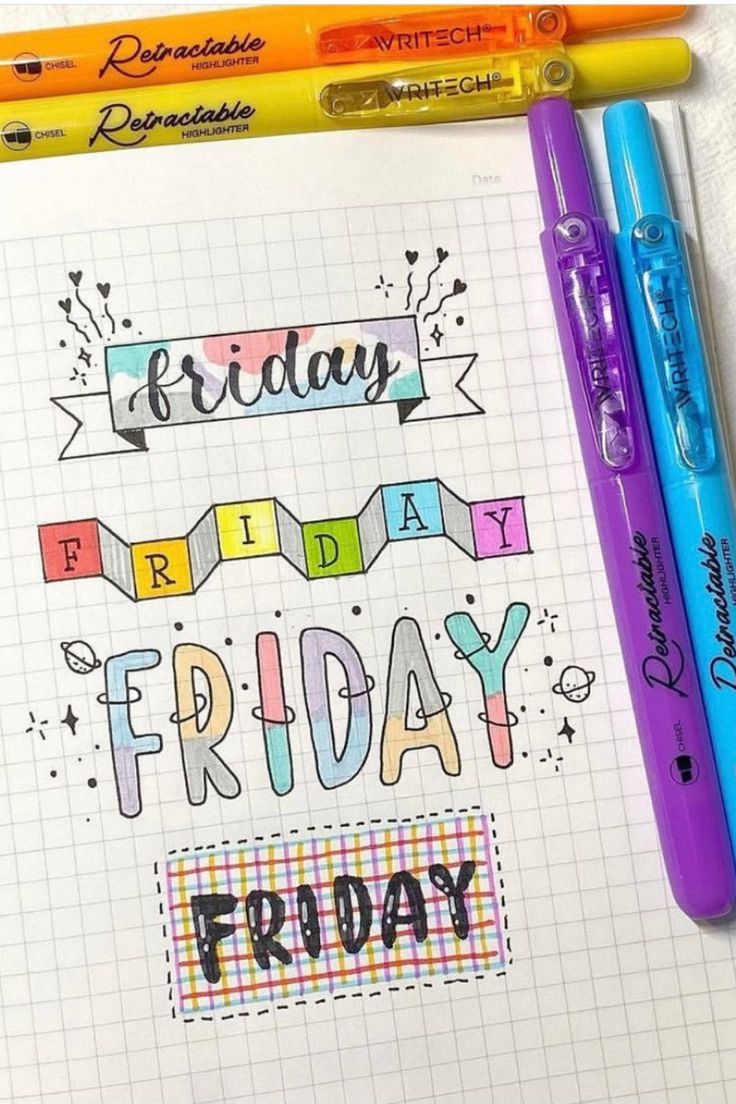 CHISEL Retractable HIGHLIGHTER WRITECH®
CHISEL Retractable HIGHLIGHTER WRITECH®
Date
friday
FRIDAY
FRIDAY
FRIDAY
WRITECH®
Retractable
HIGHLIGHTER
CHISEL
WRITECH®
Retractable
HIGHLIGHTER